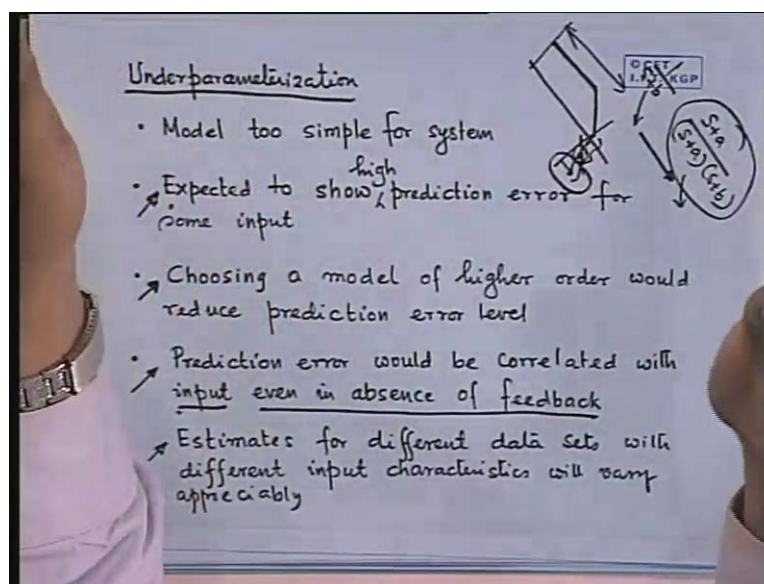 Underparameterization
© CET
I.I.T. KGP
• Model too simple for system
high
• Expected to show ^ prediction error for
some input
s+a
(s+a)(s+b)
• Choosing a model of higher order would
reduce prediction error level
• Prediction error would be correlated with
input even in absence of feedback
• Estimates for different data sets with
different input characteristics will vary
appreciably